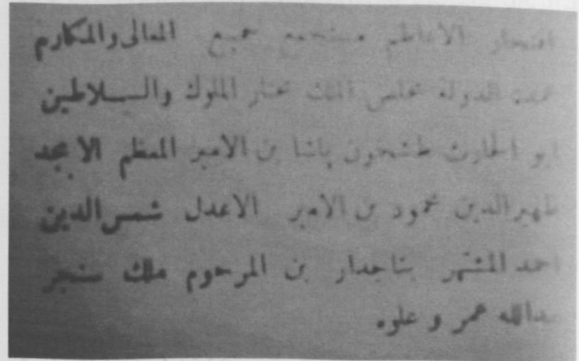 افتخار الاعاظم مستجمع جميع المعالى والمكارم
عمدة الدولة مخلص الملك مختار الملوك والسلاطين
ابو الحارث طشخون پاشا بن الامير المعظم الامجد
ظهير الدين محمود بن الامير الاعدل شمس الدين
احمد المشتهر بتاجدار بن المرحوم ملك سنجر
عمر و علوه